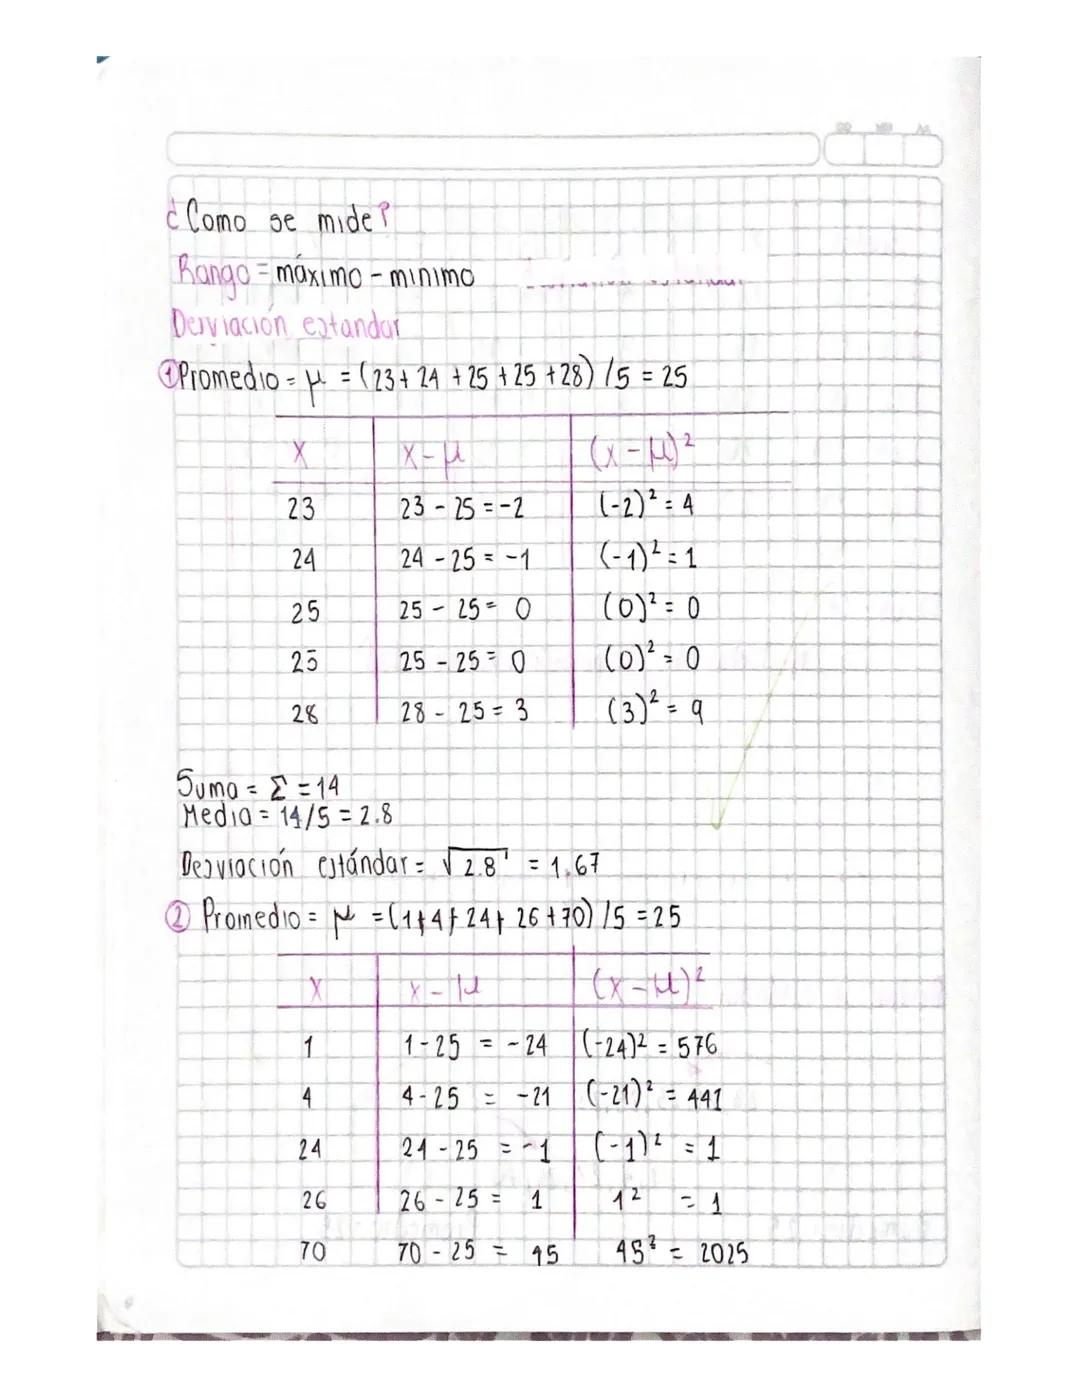 ¿Como se mide?
Rango = máximo - minimo
Desviación estandar
① Promedio = μ = (23+ 24 + 25 + 25 + 28) /5 = 25
X x-μ (x-μ)²
23 23 - 25 = -2 (-2)² = 4
24 24 - 25 = -1 (-1)² = 1
25 25 - 25 = 0 (0)² = 0
25 25 - 25 = 0 (0)² = 0
28 28 - 25 = 3 (3)² = 9
Suma = Σ = 14
Media = 14/5 = 2.8
Desviación estándar = √2.8 = 1.67
② Promedio = μ = (1+4+24+ 26+70) /5 = 25
X x-μ (x-μ)²
1 1-25 = -24 (-24)² = 576
4 4-25 = -21 (-21)² = 441
24 24-25 = -1 (-1)² = 1
26 26-25 = 1 1² = 1
70 70-25 = 45 45² = 2025